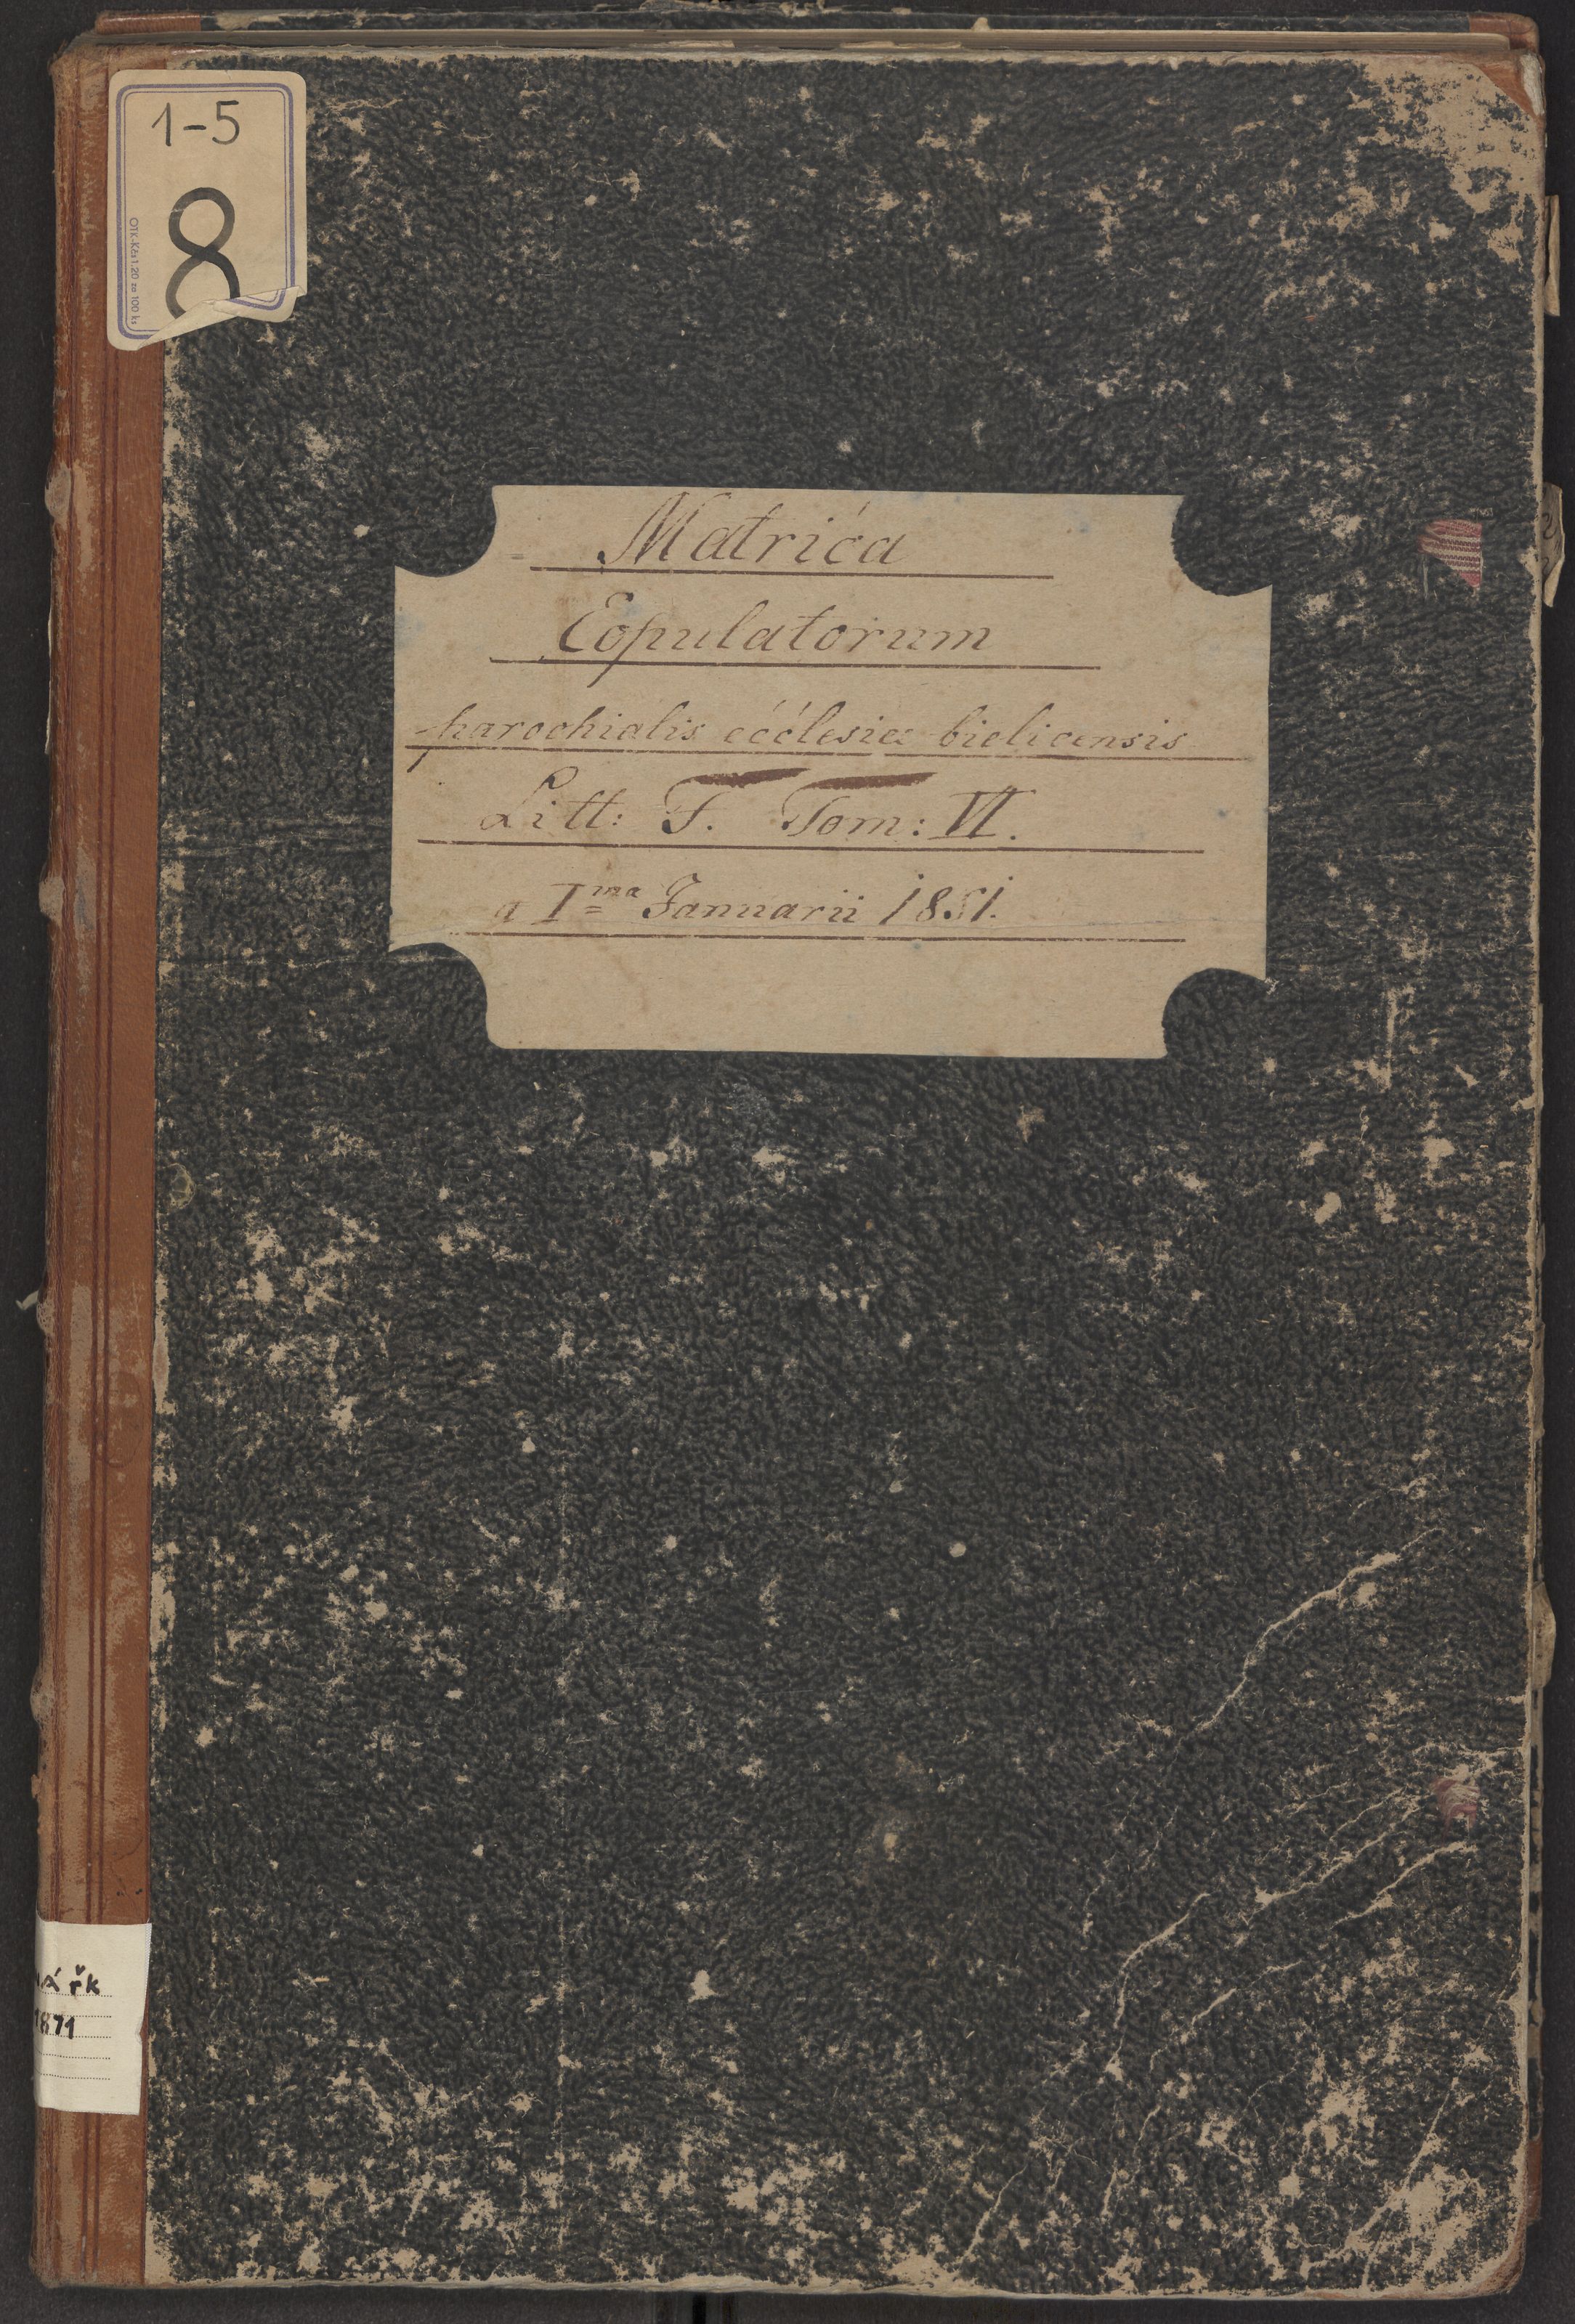 1-5
8
OTK-Kčs 1.20 za 100 ks
Matrica
Copulatorum
parochialis ecclesiæ bielicensis
Litt: F. Tom: VI.
a I=ma Januarii 1851.
ářk
1871